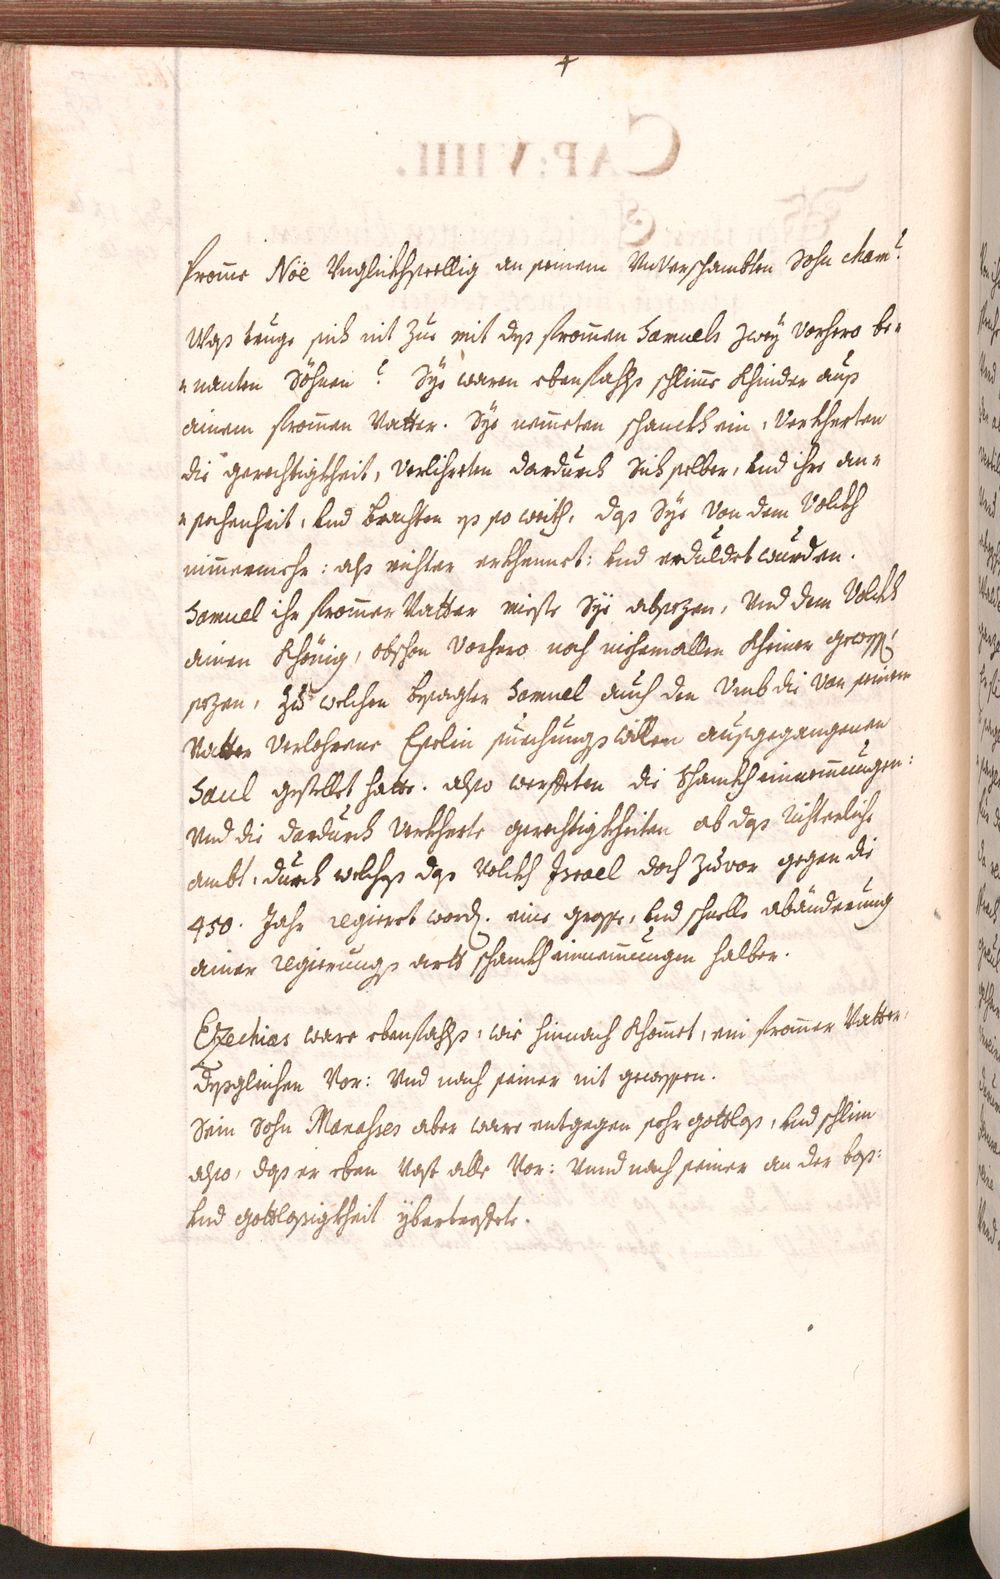 fromme Nöe Unglückhseelig an seinem Unverschambten Sohn cham?
Was truge sich nit zue mit des frommen Samuels zwey vorhero be-
-nanten Söhnen? Sye waren ebenfahls schlime Khinder aus
ainem frommen Vatter. Sye nemmeten schanckh ein, verkherten
die gerechtigkheit, verliehreten dardurch sich selber, und ihre an-
-sechenheit, und brachten es so weith, das Sye von dem Volckh
nimmermehr: als richter erkhennet: und erduldet wurden.
Samuel ihr frommer Vatter mieste Sye absezen, und dem Volckh
ainen Khönig, obschon vorhero noch niehemallen kheiner gewest
sezen, zu welchen besagter Samuel auch den umb die von seinem
Vatter verlohrene Eselin suechungs willen ausgegangenen
Saul gestellet hatte. also werffeten die schanckh einnemmungen:
und die dardurch verkherte gerechtigkheiten ob das richterliche
ambt, durch welches das Volckh Israel doch zuvor gegen die
450. Jahr regieret word. eine grosse, und schnelle abänderung
ainer regierungs arth schanckh einnemmungen halber.
Ezechias ware ebenfahls, wie hinnach khommet, ein frommer Vatter,
desgleichen vor: und nach seiner nit gewessen.
Sein Sohn Manasses aber ware entgegen sehr gottlos, und schlim
also, das er eben vast alle vor: unnd nach seiner an der bos:
und gottlosigkheit yberteffete.